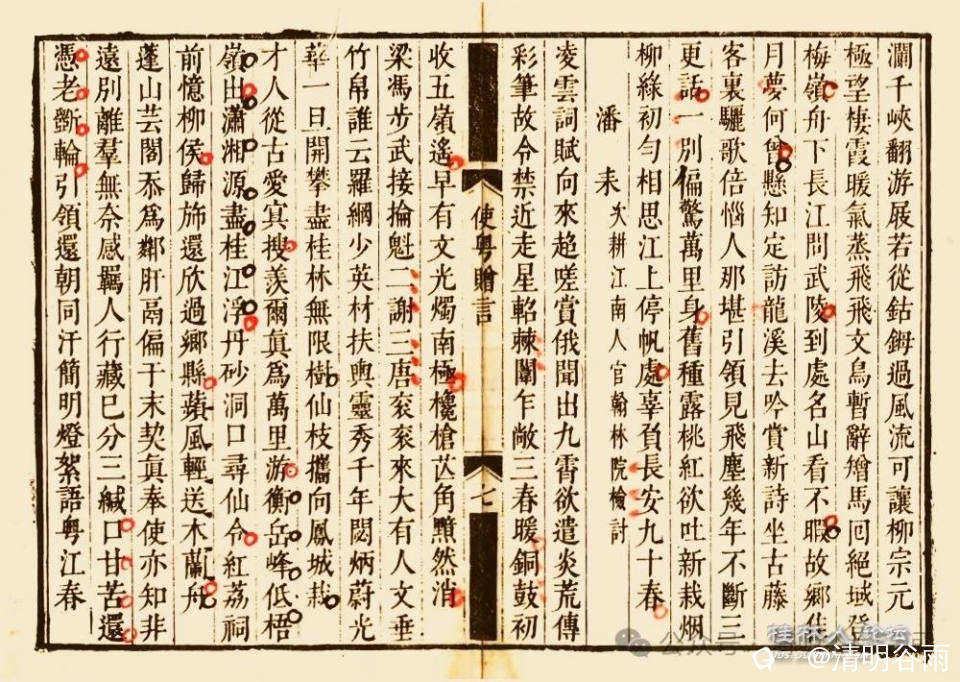 瀾千峽翻游屐若從鈷鉧過風流可讓柳宗元
極望棲霞暖氣蒸飛飛文鳥暫辭矰馬回絕域登
梅嶺舟下長江問武陵到處名山看不暇故鄉佳
月夢何曾懸知定訪龍溪去吟賞新詩坐古藤
客裏驪歌倍惱人那堪引領見飛塵幾年不斷三
更話一別偏驚萬里身舊種露桃紅欲吐新栽烟
柳綠初勻相思江上停帆處辜負長安九十春
潘耒 次耕江南人官翰林院檢討
凌雲詞賦向來趍嗟賞俄聞出九霄欲遣炎荒傳
彩筆故令禁近走星軺棘闈乍敞三春暖銅鼓初
使粵贈言 七
收五嶺遙早有文光燭南極欃槍芒角黯然消
梁馮步武接掄魁二謝三唐衮衮來大有人文垂
竹帛誰云羅網少英材扶輿靈秀千年閟炳蔚光
華一旦開攀盡桂林無限樹仙枝攜向鳳城栽
才人從古愛冥搜羨爾眞爲萬里游衡岳峰低梧
嶺出瀟湘源盡桂江浮丹砂洞口尋仙令紅荔祠
前憶柳侯歸斾還欣過鄉縣蘋風輕送木蘭舟
蓬山芸閣忝爲鄰肝鬲偏干末契眞奉使亦知非
遠別離羣無奈感羈人行藏已分三緘口甘苦還
憑老斲輪引領還朝同汗簡明燈絮語粵江春
公众号
桂林人论坛
@清明谷雨